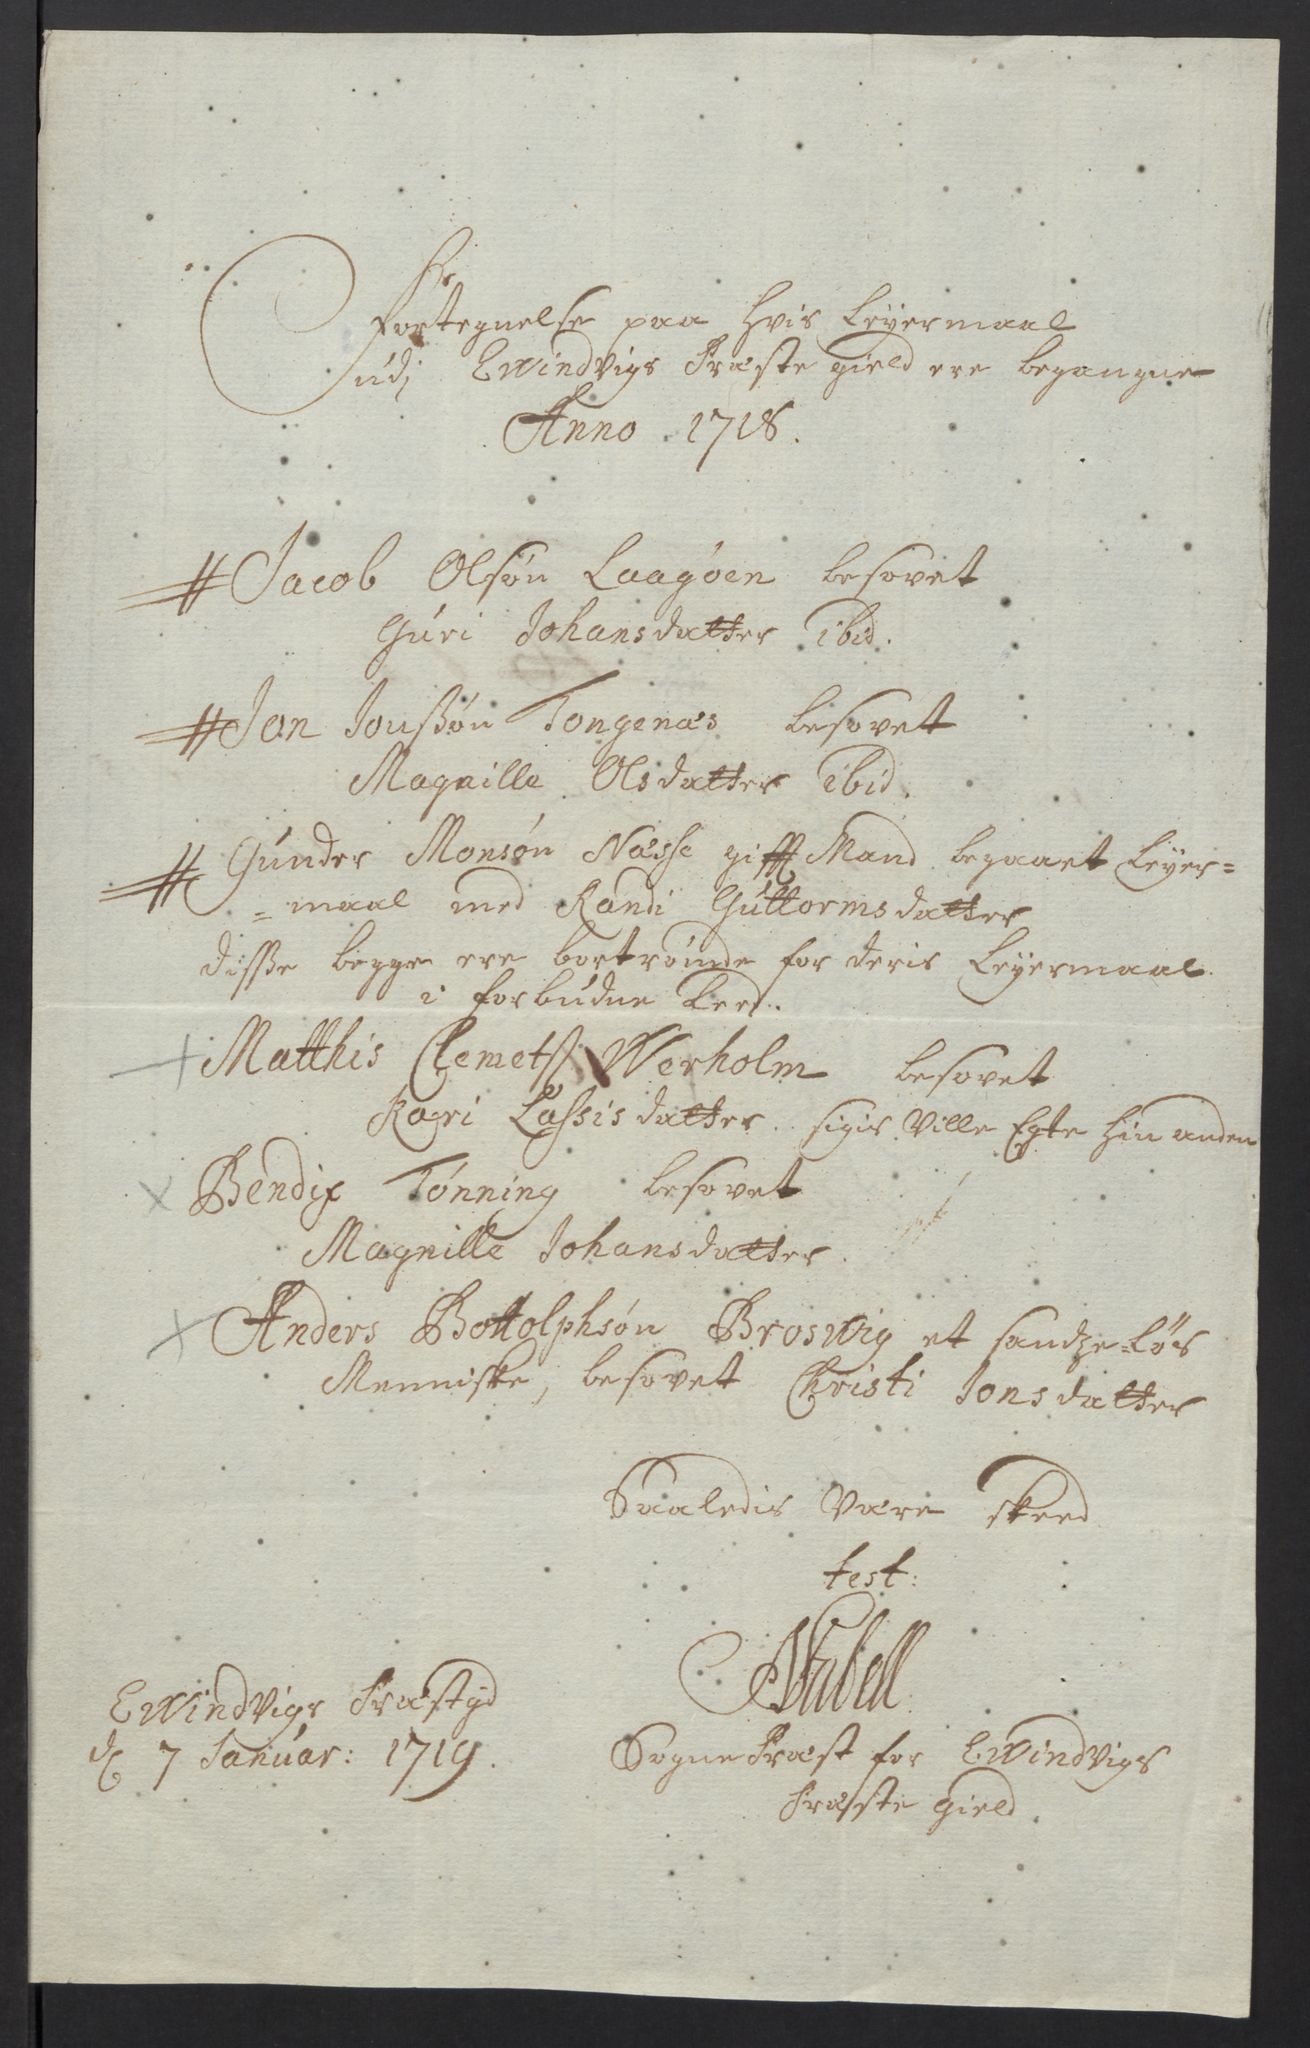 Fortegnelse paa hvis Leyermaal
udj Ewindvigs Præste gield ere begangne
Anno 1718.
Jacob Olsøn Laagøen besovet
Guri Johansdatter ibid.
Jon Jonssøn Tongenæs besovet
Magnille Olsdatter ibid.
Gunder Monsøn Næsse gifft Mand begaaet Leyer=
=maal med Randi Guttormsdatter
disse begge ere bortrømde for deris Leyermaal
i forbudne Leed.
Matthis Clemetss Werholm besovet
Kari Lassisdatter. sigis Ville Egte hin anden
Bendix Tønning besovet
Magnille Johansdatter.
Anders Bottolphsøn Broswig et sandze=løs
Menniske, besovet Christi Jonsdatter
Saaledis Være skeed
test:
Stabell
Ewindvigs Præstgd
d 7 Januar: 1719.
Sogne Præst for Ewindvigs
Præste gield.